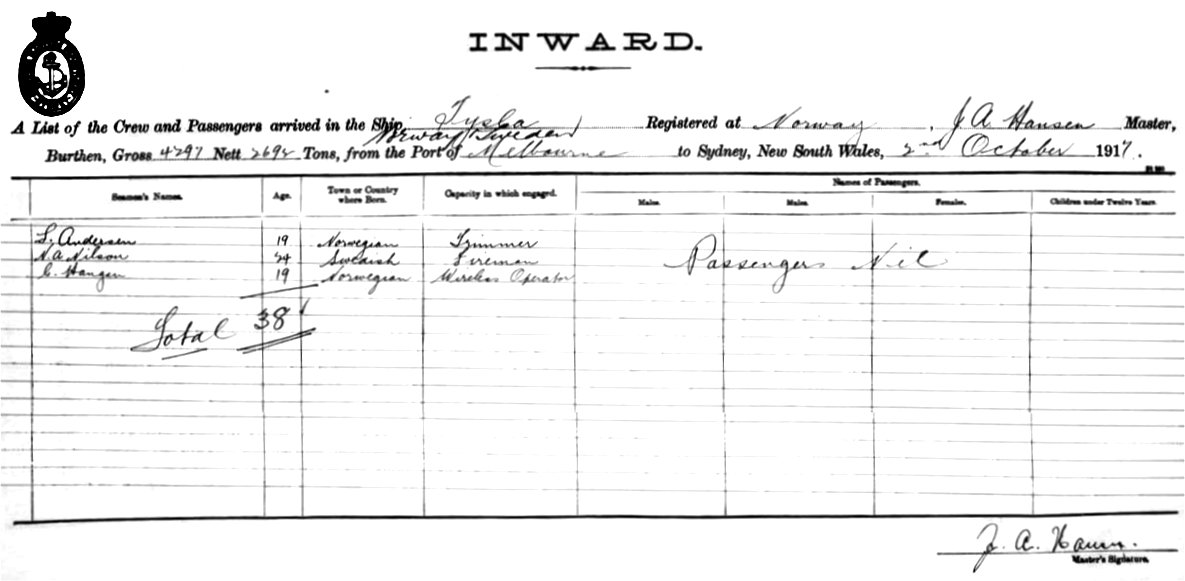 INWARD.
A List of the Crew and Passengers arrived in the Ship Tysla Registered at Norway, J A Hansen Master,
Norway Sweden
Burthen, Gross 4297 Nett 2692 Tons, from the Port of Melbourne to Sydney, New South Wales, 2nd October 1917.
Seamen's Names. Age. Town or Country where Born. Capacity in which engaged. Names of Passengers.
Males. Males. Females. Children under Twelve Years.
L. Andersen 19 Norwegian Trimmer
N. A. Nilson 24 Swedish Fireman
C. Haugen 19 Norwegian Wireless Operator
Passengers Nil
Total 38
J. A. Hansen.
Master's Signature.